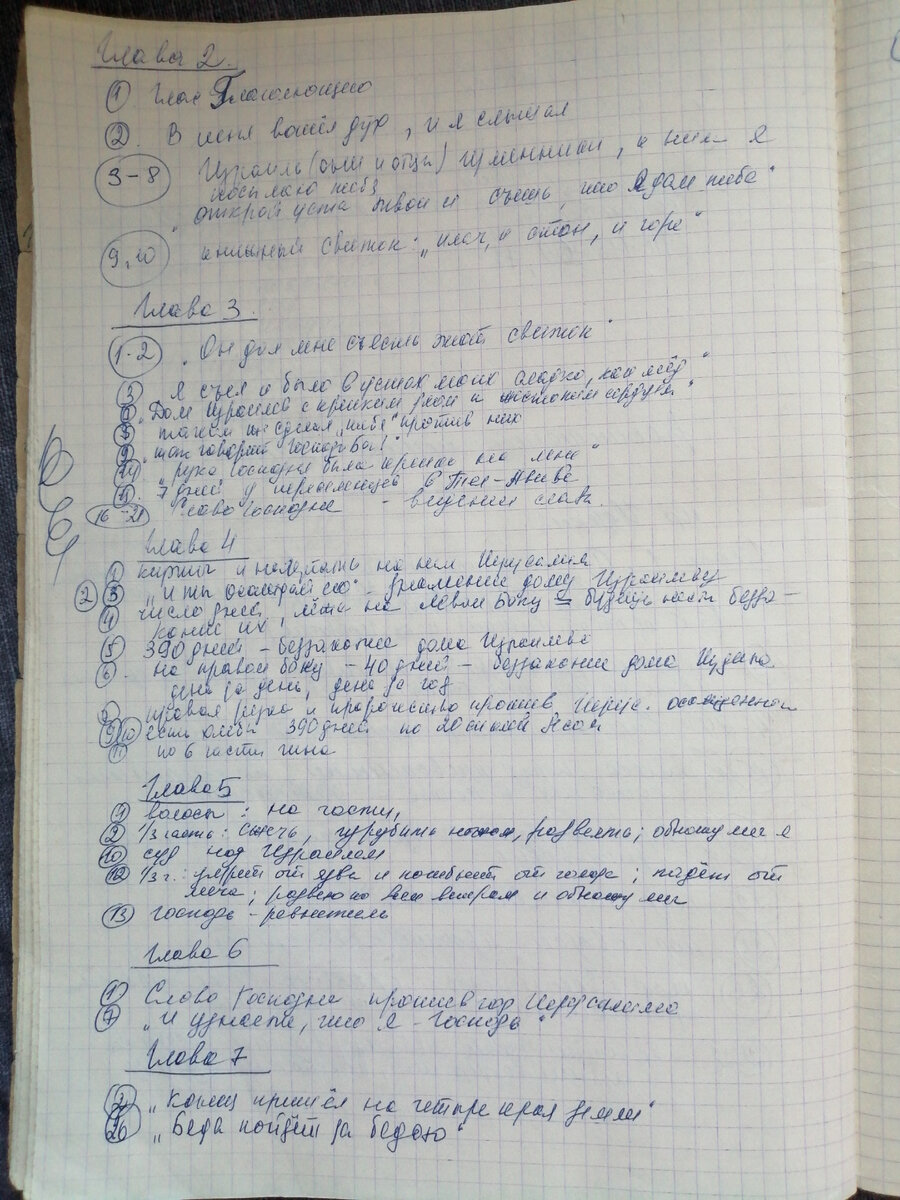 Глава 2.
① Глас Глаголющего
②. В меня вошёл дух, и я слышал
3-8 Израиль (сыны и отцы) изменники, к ним Я
посылаю тебя
"открой уста твои и съешь, что Я дам тебе"
9,10 книжный свиток: „плач, и стон, и горе"
Глава 3.
1-2 „Он дал мне съесть этот свиток"
③ Я съел и было в устах моих сладко, как мёд"
⑦ "Дом Израилев с крепким лбом и жестоким сердцем"
⑧ таким же сделал „тебя" против них
"так говорит Господь Бог!"
14 „рука Господня была крепка на мне"
15. 7 дней у переселенцев в Тел-Авиве
16-21 Слово Господне - видение славы.
Глава 4
① кирпич и на нём Иерусалим
2 ③ „и ты осаждай его" - знамение дому Израилеву
④ число дней, лёжа на левом боку = будешь нести безза-
коние их
⑤ 390 дней - беззаконие дома Израилева
⑥. на правом боку - 40 дней - беззаконие дома Иудина
день за день, день за год
правая рука и пророчество против Иерус. осаждённого
⑨ ⑩ есть хлебы 390 дней по 20 сиклей
⑪ по 6 части гина
Глава 5
① волосы: на части,
② 1/3 часть: сжечь, изрубить ножом, развеять; обнажу меч я
⑩ суд над Израилем
⑫ 1/3 ч.: умрёт от язвы и погибнет от голода; падёт от
меча; развею по всем ветрам и обнажу меч
⑬ Господь - ревнитель
Глава 6
① Слово Господне против гор Израилевых
⑦ „И узнаете, что Я - Господь"
Глава 7
② „Конец пришёл на четыре края земли"
26 „Беда пойдёт за бедою"